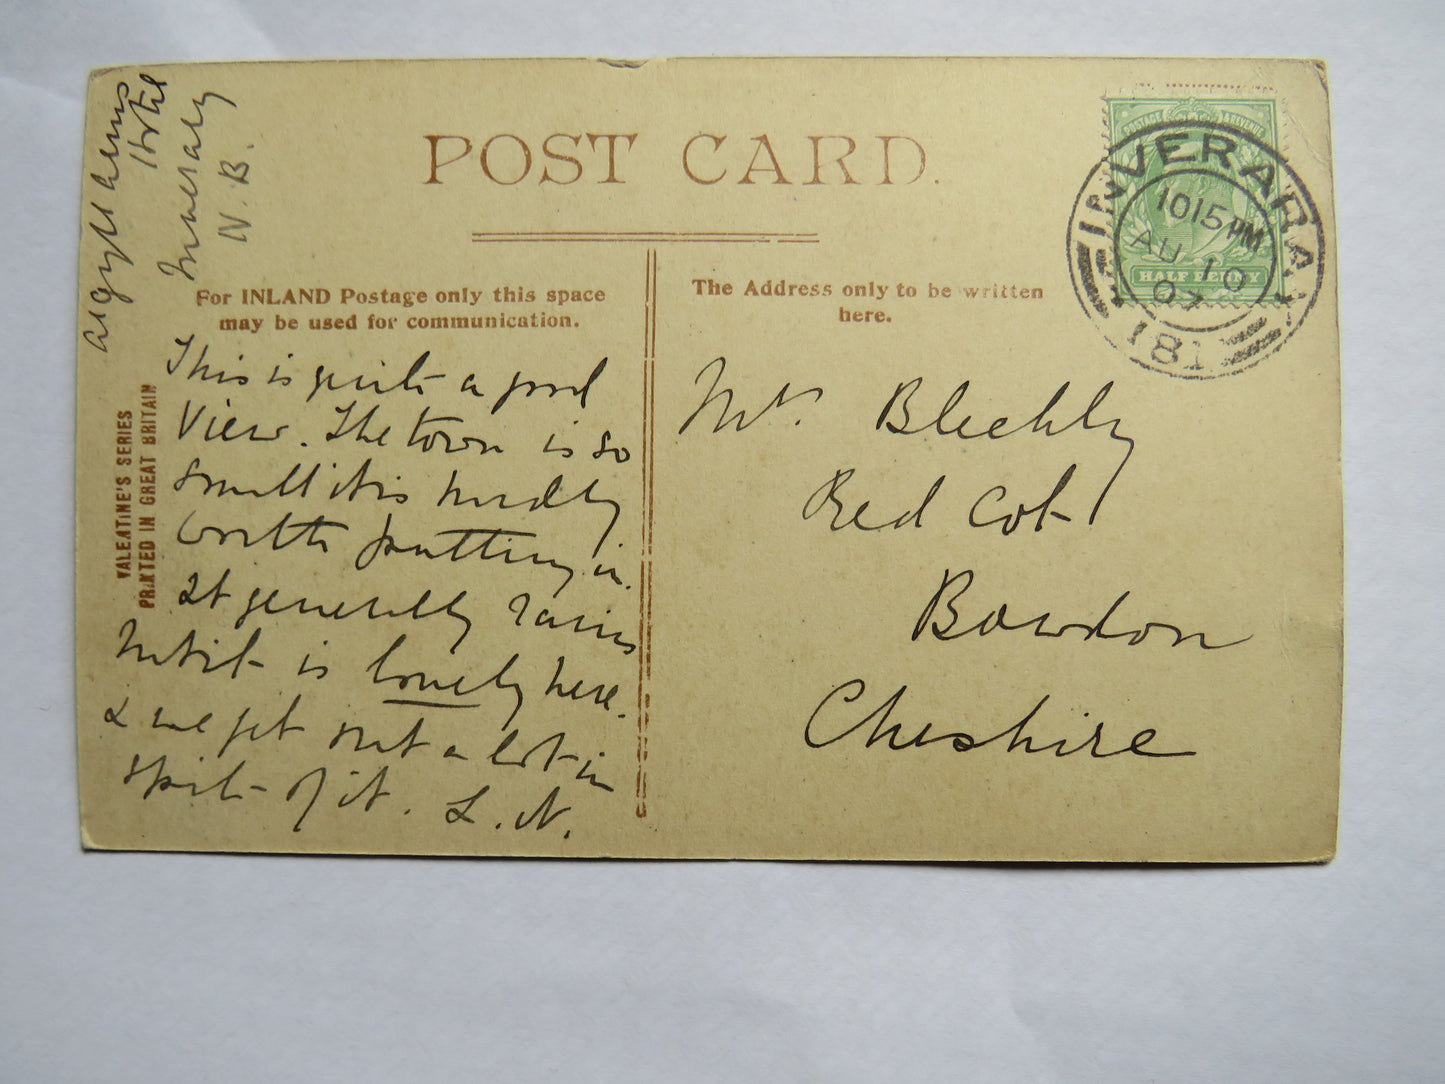 POST CARD.
For INLAND Postage only this space
may be used for communication.
The Address only to be written
here.
VALENTINE'S SERIES
PRINTED IN GREAT BRITAIN
POSTAGE & REVENUE
HALF PENNY
INVERARAY
1015PM
AU 10
07
181
Argyll Arms
Hotel
Inveraray
N.B.
This is quite a good
View. The town is so
small it is hardly
worth putting in.
It generally rains
but it is lovely here.
& we get out a lot in
spite of it. L. N.
Blechly
Red Cot
Bowdon
Cheshire